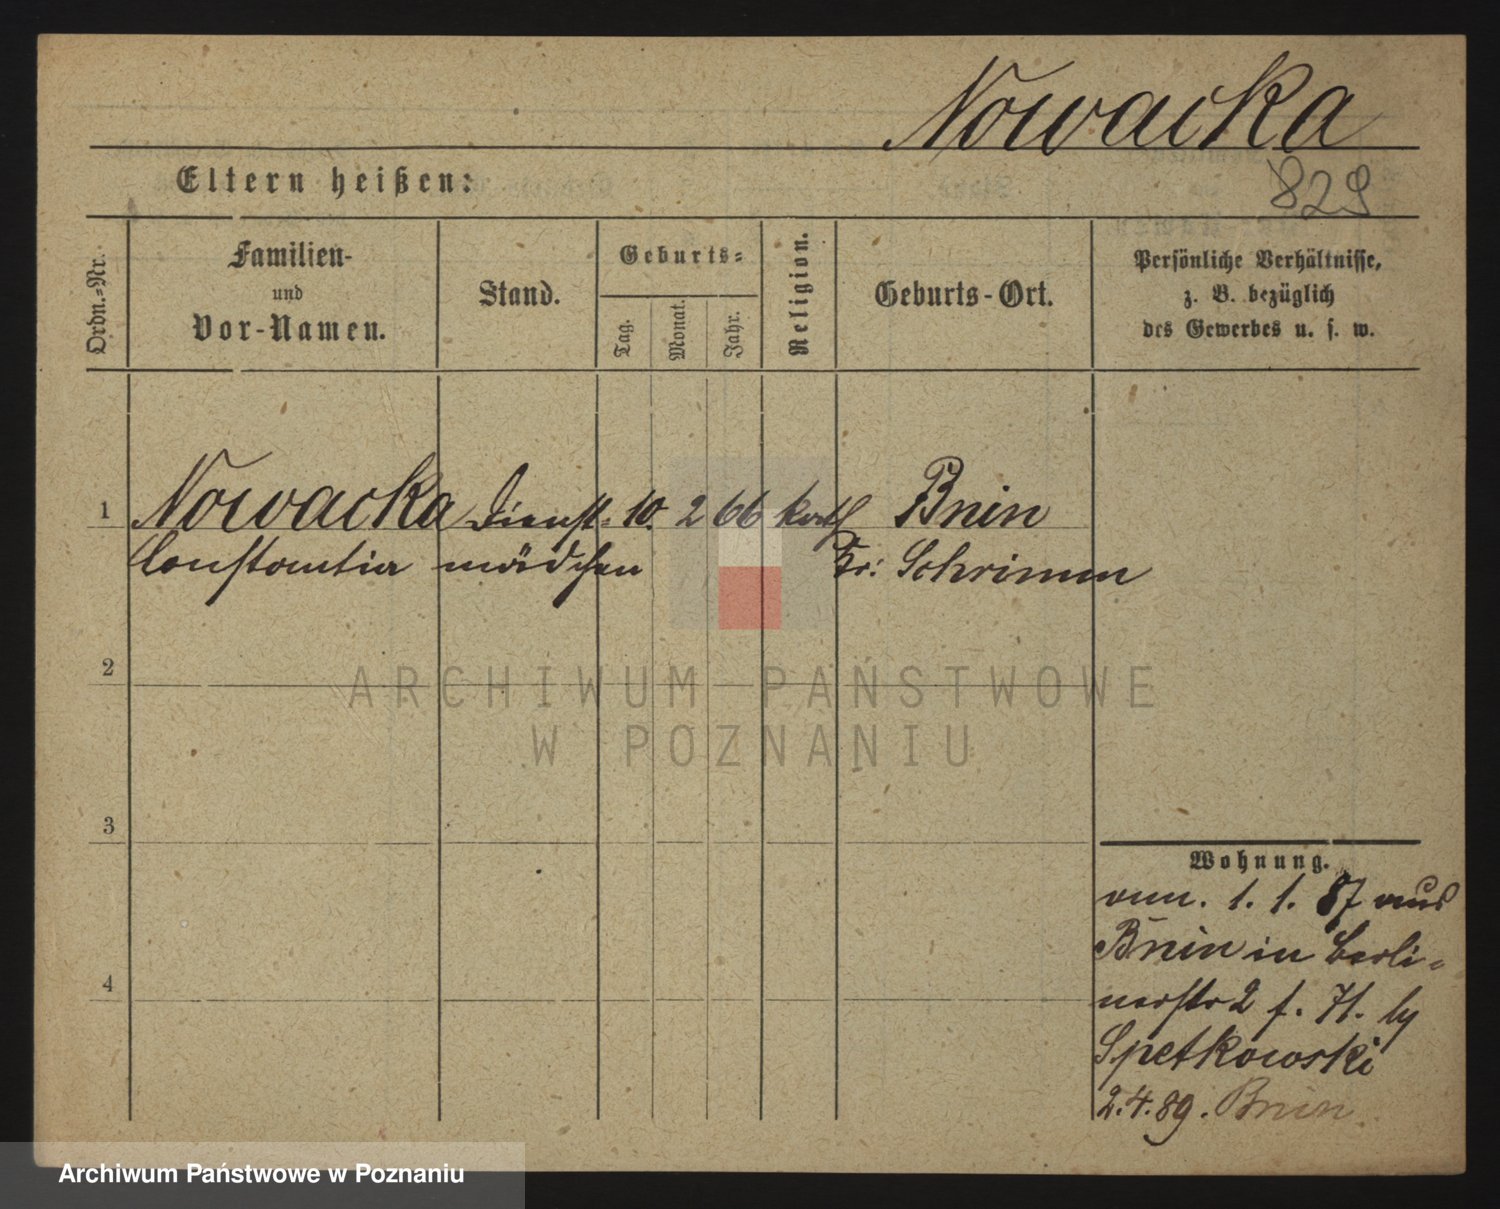 Nowacka
829
Eltern heißen:
Ordn.-Nr.
Familien-
und
Vor-Namen.
Stand.
Geburts-
Tag.
Monat.
Jahr.
Religion.
Geburts-Ort.
Persönliche Verhältnisse,
z. B. bezüglich
des Gewerbes u. s. w.
1 Nowacka Dienst- 10. 2 66 kath Bnin
Constantia mädchen Kr: Schrimm
2
3
4
Wohnung.
1. 1. 87 aus
Bnin in Berli-
nerstr 2 f. 71. by
Spetkowski
2.4.89. Bnin
ARCHIWUM PAŃSTWOWE
W POZNANIU
Archiwum Państwowe w Poznaniu